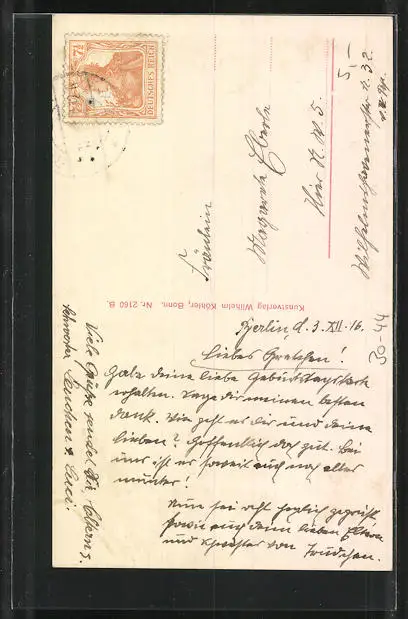 7½
DEUTSCHES REICH
7½
Fräulein
Margarete Eberle
Hier N. W. 5.
Wilhelmshavenerstr. 32.
5,–
30-44
Kunstverlag Wilhelm Köhler, Bonn. Nr. 2160 B.
Berlin, d. 3. XII. 16.
Liebes Gretchen!
Habe deine liebe Geburtstagskarte
erhalten. Sage dir meinen besten
Dank. Wie geht es dir und deine
lieben? Hoffentlich doch gut. Bei
uns ist es soweit auch noch alles
munter!
Nun sei recht herzlich gegrüßt
sowie auch deine lieben Eltern
und Schwester von Trudchen.
Viele Grüße sendet Dir, Eltern &
Schwester & Luci.